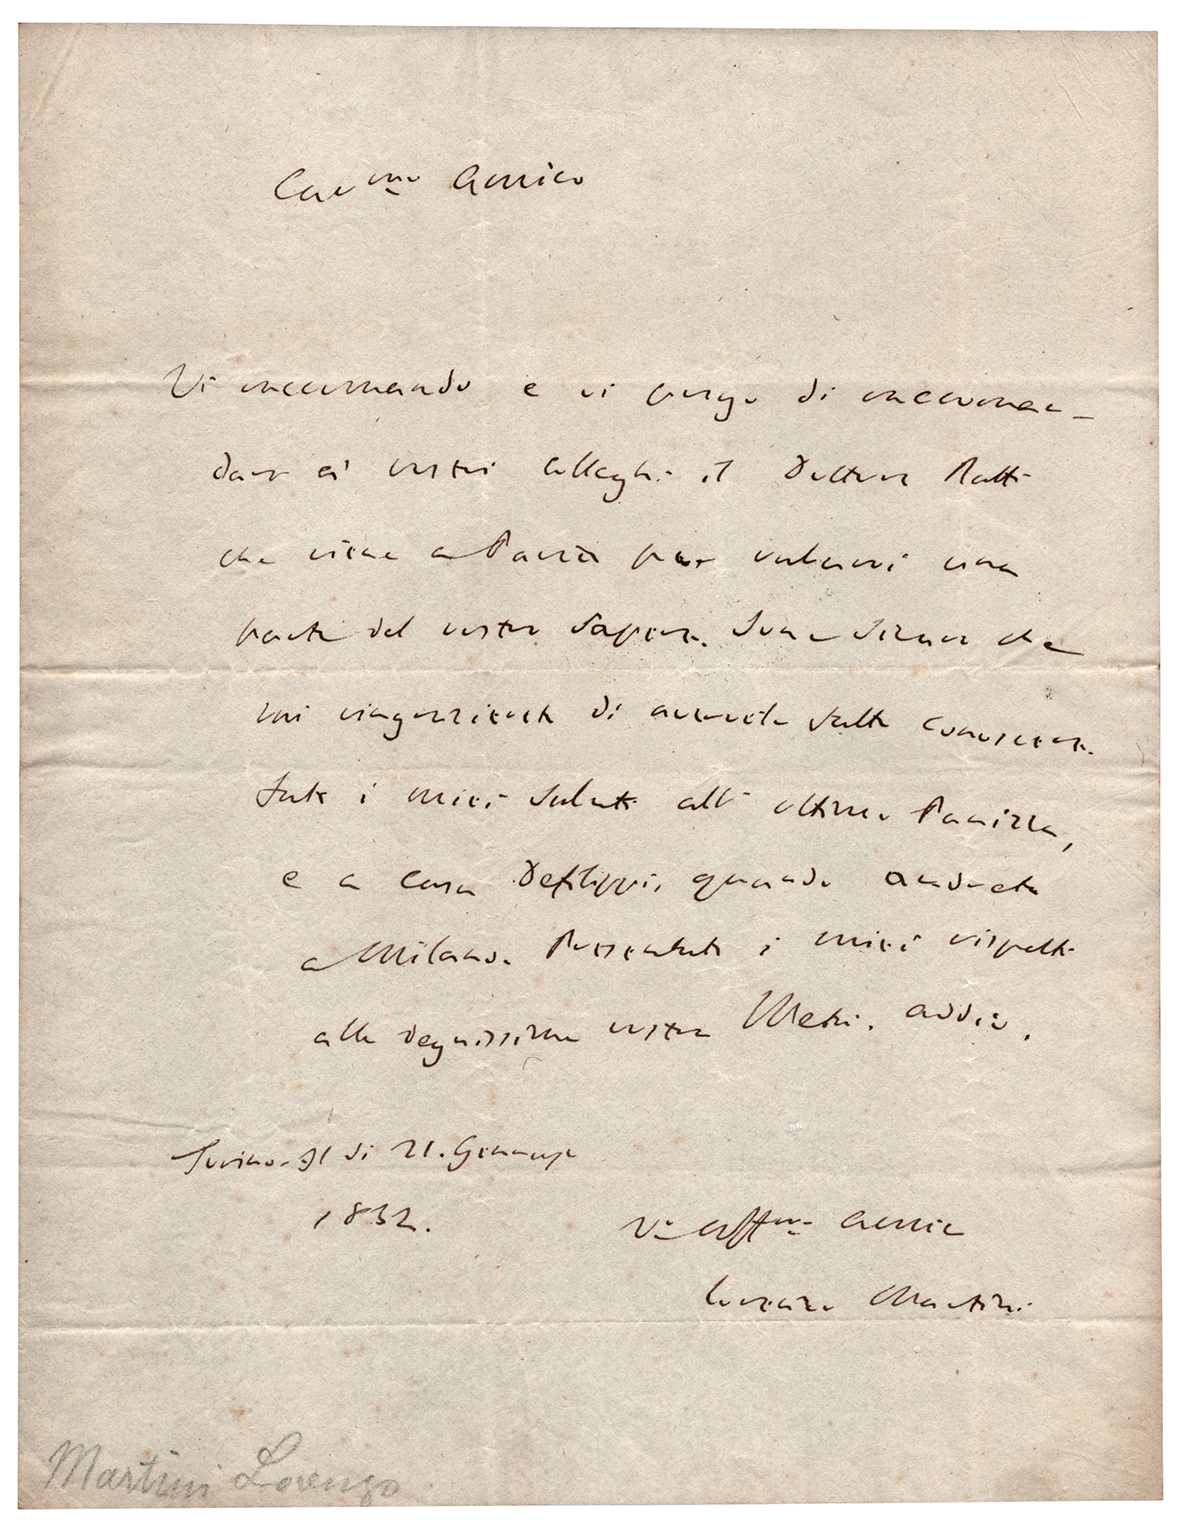 Car.mo Amico
Vi raccomando e vi prego di raccoman-
dare ai vostri colleghi il Dottore Ratti
che viene a Pavia per rubarvi una
parte del vostro sapere. Sono sicuro che
mi ringrazierete di avervelo fatto conoscere.
Fate i miei saluti all' ottimo Panizza,
e a casa Defilippi, quando andrete
a Milano. Presentate i miei rispetti
alla degnissima vostra Metà. addio.
Torino. il di 21. Gennajo
1832.
Vo aff.mo amico
Lorenzo Martini
Martini Lorenzo